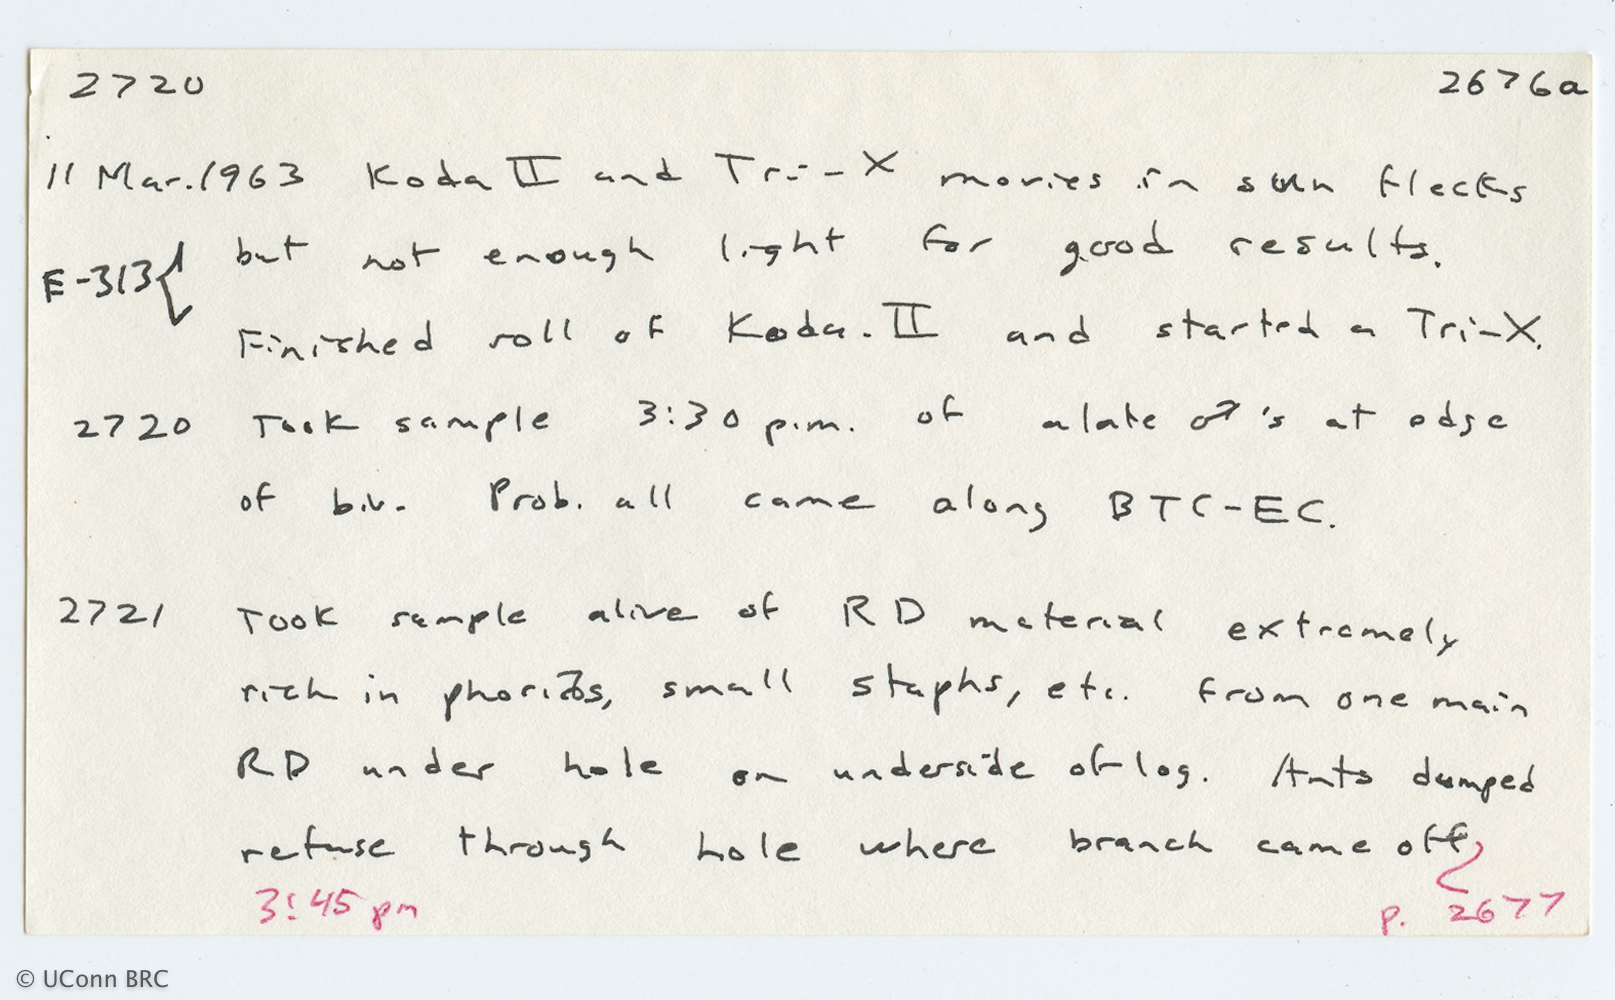 2720 2676a
11 Mar. 1963 Koda II and Tri-X movies in sun flecks
E-313 { but not enough light for good results.
Finished roll of Koda. II and started a Tri-X.
2720 Took sample 3:30 p.m. of alate ♂'s at edge
of biv. Prob. all came along BTC-EC.
2721 Took sample alive of RD material extremely
rich in phorids, small staphs, etc. from one main
RD under hole on underside of log. Ants dumped
refuse through hole where branch came off,
3:45 pm p. 2677
© UConn BRC